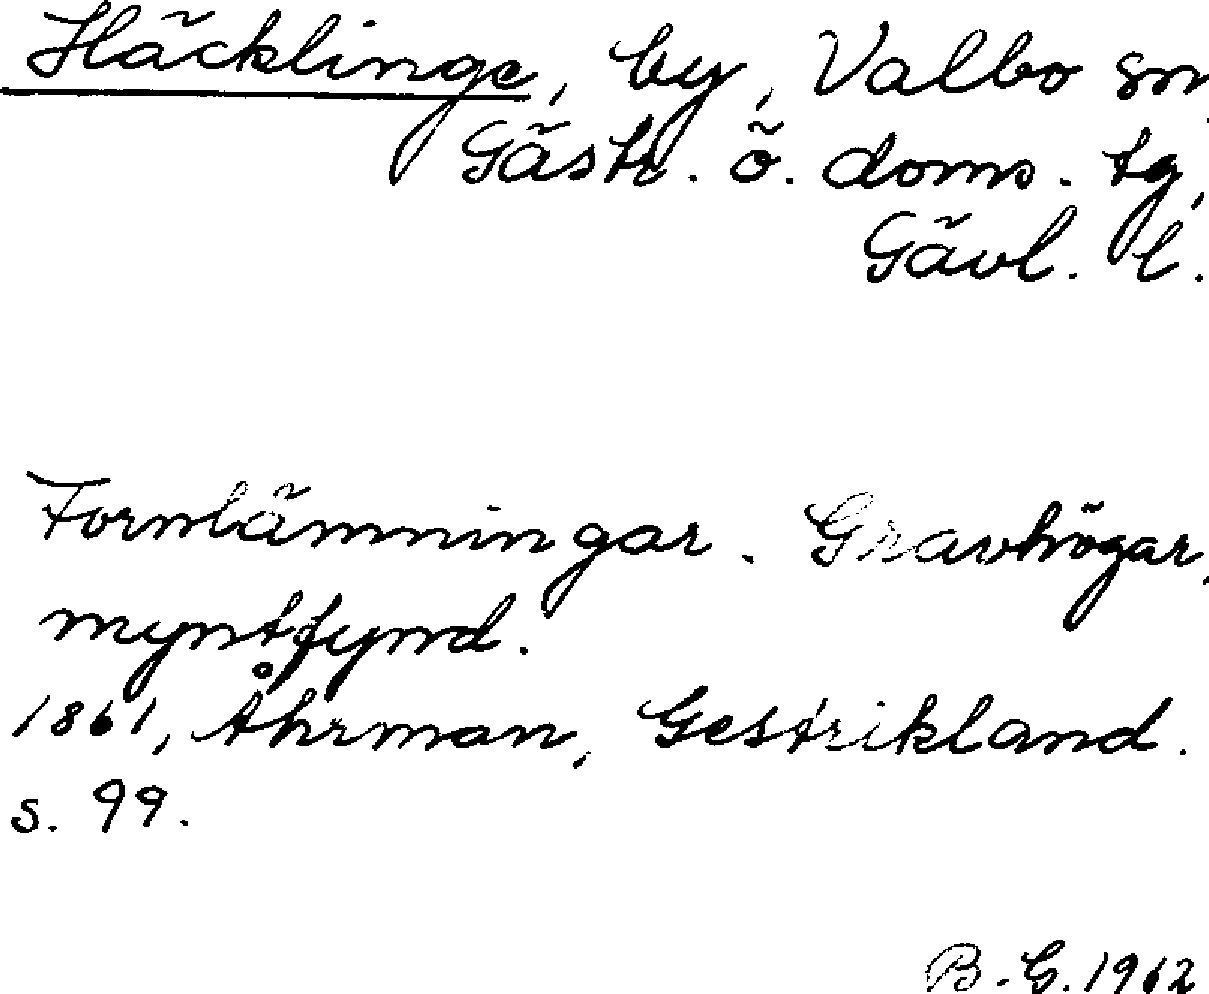 Häcklinge, by, Valbo sn
Gästr. ö. doms. tg,
Gävl. l.
Fornlämningar. Gravhögar,
myntfynd.
1861, Åhrman, Gestrikland.
s. 99.
B.G. 1962